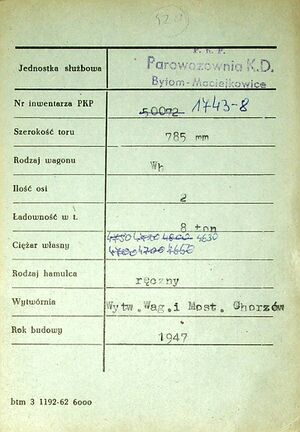 P. K. P.
Jednostka służbowa Parowozownia K.D.
Bytom-Maciejkowice
Nr inwentarza PKP 50072 1743-8
Szerokość toru 785 mm
Rodzaj wagonu Wh
Ilość osi 2
Ładowność w t. 8 ton
Ciężar własny 4750 4720 4800 4630
4700 4700 4660
Rodzaj hamulca ręczny
Wytwórnia Wytw.Wag.i Most. Chorzów
Rok budowy 1947
btm 3 1192-62 6000